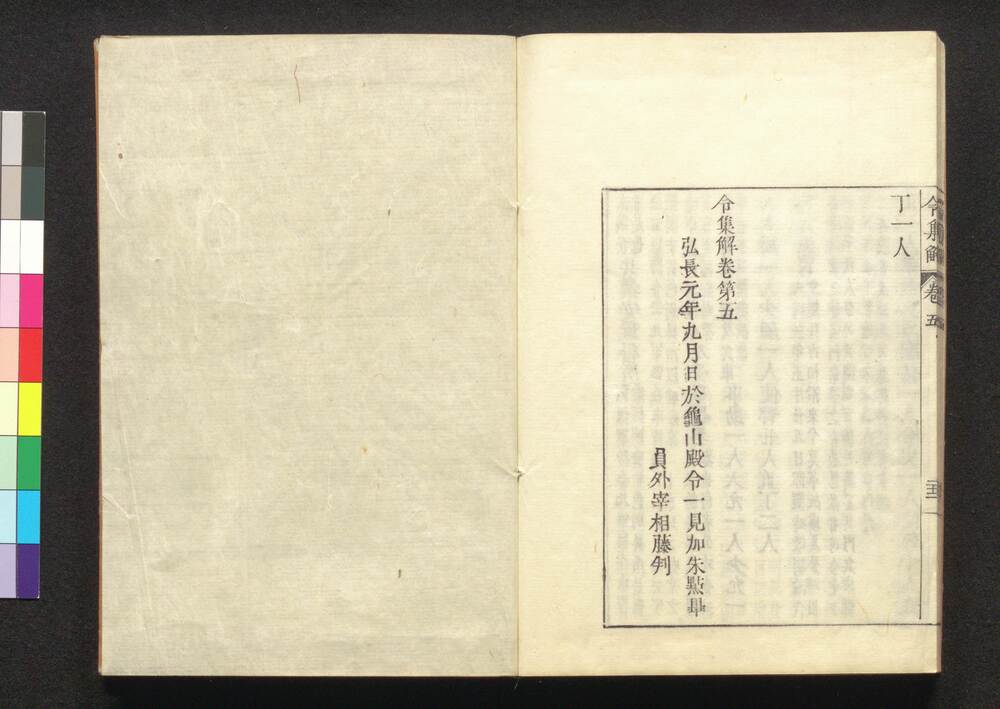 令集解 卷五
丁一人
令集解卷第五
弘長元年九月日於龜山殿令一見加朱點畢
員外宰相藤判